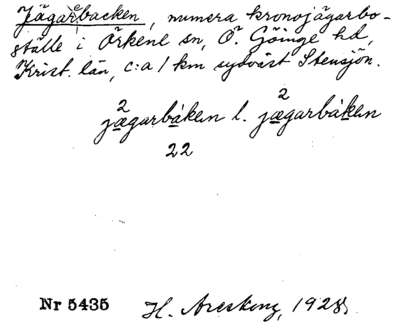 Jägarebacken, numera kronojägarbo-
ställe i Örkene sn, Ö. Göinge hd,
Krist. län, c:a 1 km sydväst Stensjön.
2 2
jægarbáken l. jægarbàken
22
Nr 5435 H. Areskog, 1928.